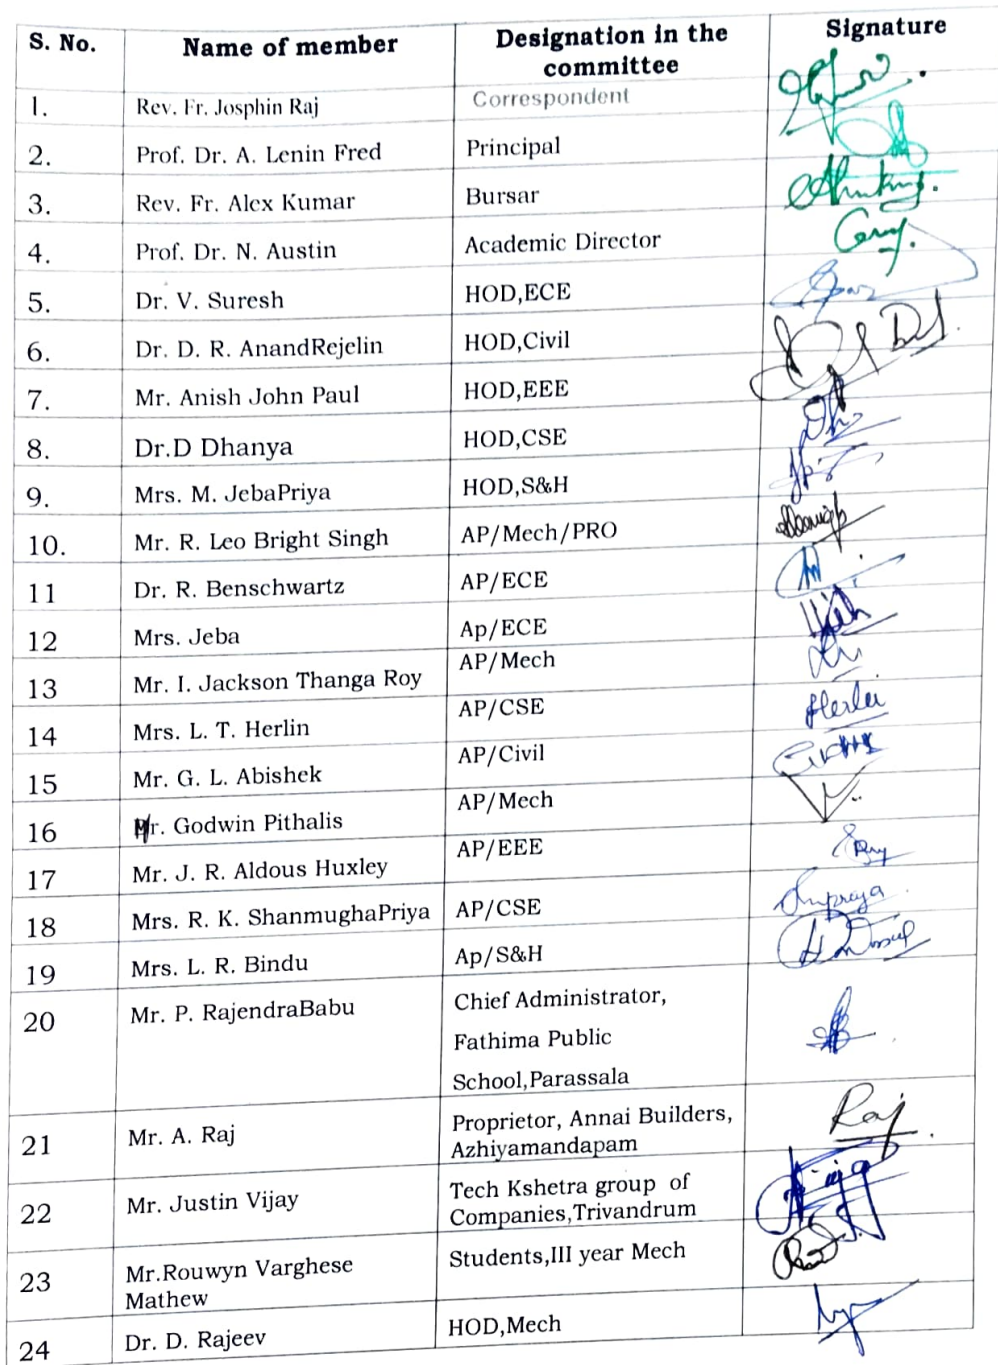 S. No. Name of member Designation in the committee Signature
1. Rev. Fr. Josphin Raj Correspondent
2. Prof. Dr. A. Lenin Fred Principal
3. Rev. Fr. Alex Kumar Bursar
4. Prof. Dr. N. Austin Academic Director
5. Dr. V. Suresh HOD,ECE
6. Dr. D. R. AnandRejelin HOD,Civil
7. Mr. Anish John Paul HOD,EEE
8. Dr.D Dhanya HOD,CSE
9. Mrs. M. JebaPriya HOD,S&H
10. Mr. R. Leo Bright Singh AP/Mech/PRO
11 Dr. R. Benschwartz AP/ECE
12 Mrs. Jeba Ap/ECE
13 Mr. I. Jackson Thanga Roy AP/Mech
14 Mrs. L. T. Herlin AP/CSE
15 Mr. G. L. Abishek AP/Civil
16 Mr. Godwin Pithalis AP/Mech
17 Mr. J. R. Aldous Huxley AP/EEE
18 Mrs. R. K. ShanmughaPriya AP/CSE
19 Mrs. L. R. Bindu Ap/S&H
20 Mr. P. RajendraBabu Chief Administrator,
Fathima Public
School,Parassala
21 Mr. A. Raj Proprietor, Annai Builders,
Azhiyamandapam Raj
22 Mr. Justin Vijay Tech Kshetra group of
Companies,Trivandrum
23 Mr.Rouwyn Varghese Students,III year Mech
Mathew
24 Dr. D. Rajeev HOD,Mech